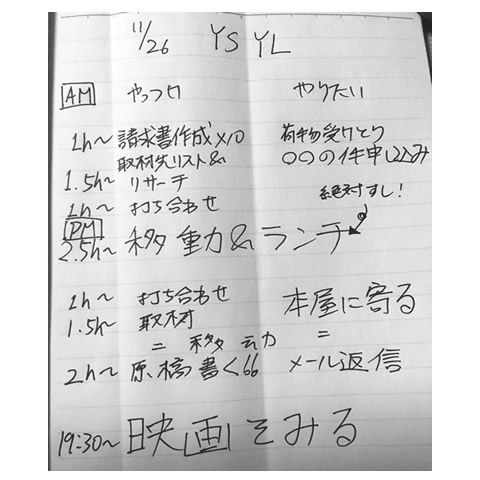 11/26 YS YL
AM やっつけ やりたい
1h〜 請求書作成×10 荷物受けとり
取材先リスト& ○○の件申し込み
1.5h〜 リサーチ
1h〜 打ち合わせ 絶対すし!
PM
2.5h〜 移動&ランチ
1h〜 打ち合わせ 本屋に寄る
1.5h〜 取材
= 移動 =
2h〜 原稿書く メール返信
19:30〜 映画をみる